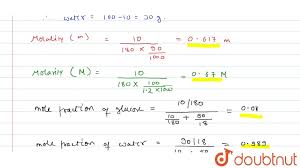 ∴ water = 100-10 = 90 g.
Molality (m) = 10 / (180 × 90/1000) = 0.617 m
Molarity (M) = 10 / (180 × 100/(1.2×1000)) = 0.67 M
mole fraction of glucose = (10/180) / (10/180 + 90/18) = 0.01
mole fraction of water = (90/18) / (10/180 + 90/18) = 0.989
doubtnut